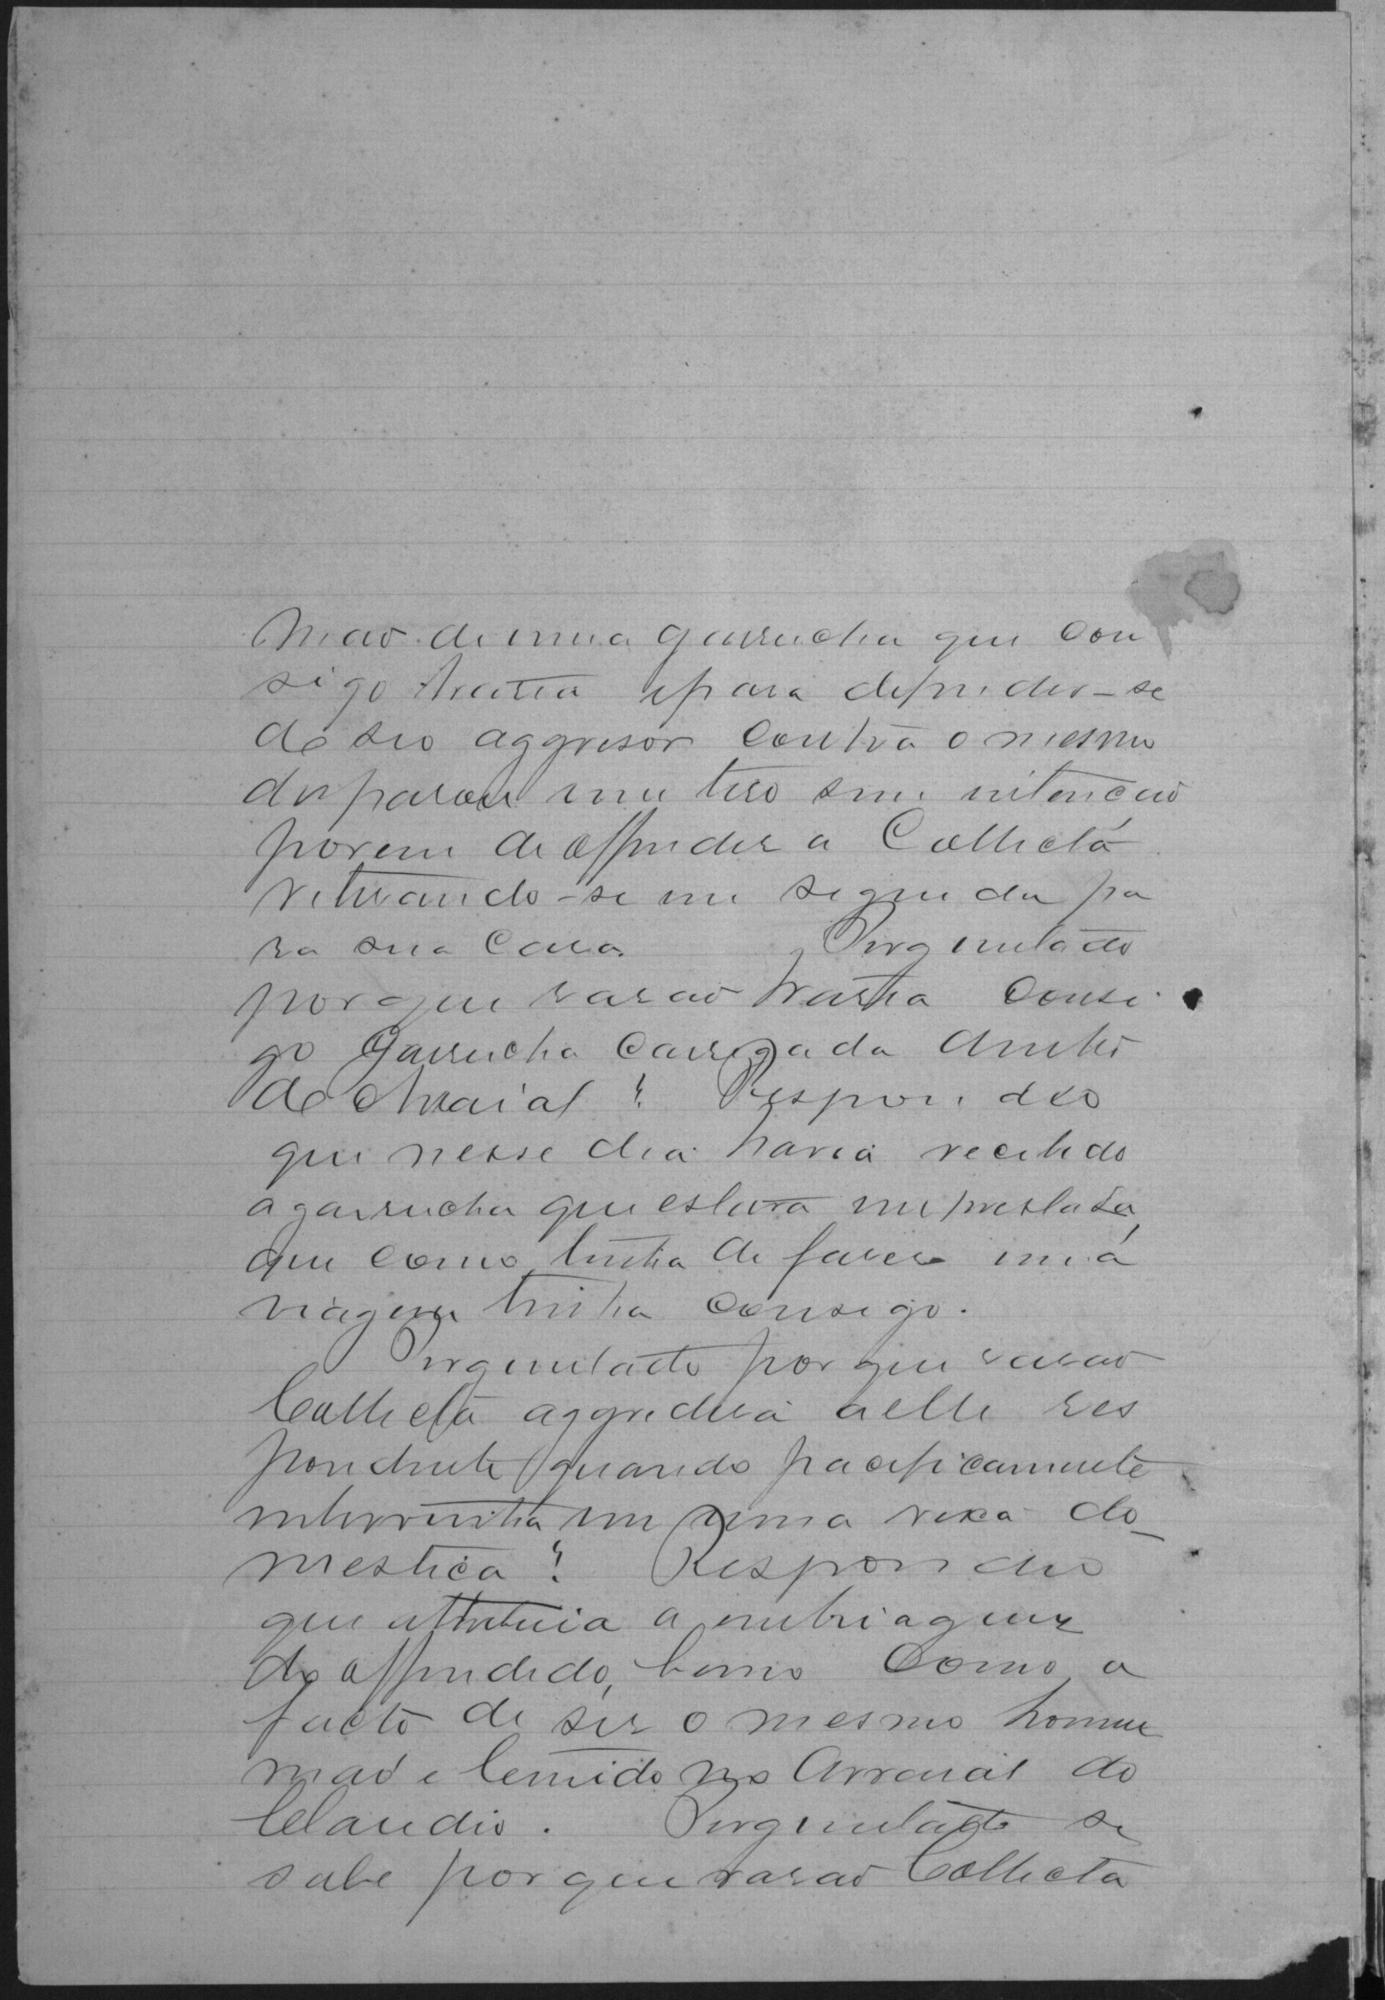 mão de uma garrucha que con
sigo trazia e para defender-se
de seo aggresor contra o mesmo
disparou um tiro sem intenção
porem de offender a Collecta
retirando-se em seguida pa
ra sua casa. Perguntado
por que rasão trasia consi
go garrucha carregada dentro
do Arraial? Respondeo
que nesse dia havia recebido
a garrucha que estava emprestada,
que como tinha de faser uma
viagem tinha consigo.
Perguntado por que rasão
Collecta aggredira a elle res
pondente quando pacificamente
intervinha em uma rixa do_
mestica? Respondeo
que attribuia a embriaguez
do offendido, bem como a
facto de ser o mesmo homem
mao e temido no Arraial do
Claudio. Perguntado se
sabe por que rasão Collecta